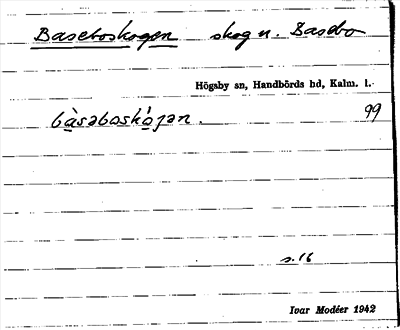 Baseboskogen skog n. Basebo
Högsby sn, Handbörds hd, Kalm. l.
bàsəboskò̱gən. 99
s. 16
Ivar Modéer 1942